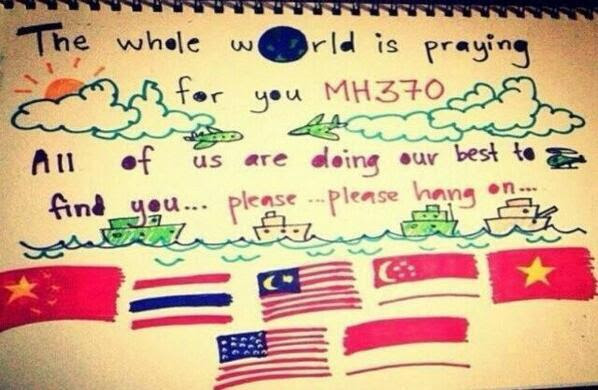 The whole world is praying
for you MH370
All of us are doing our best to
find you... please...please hang on...